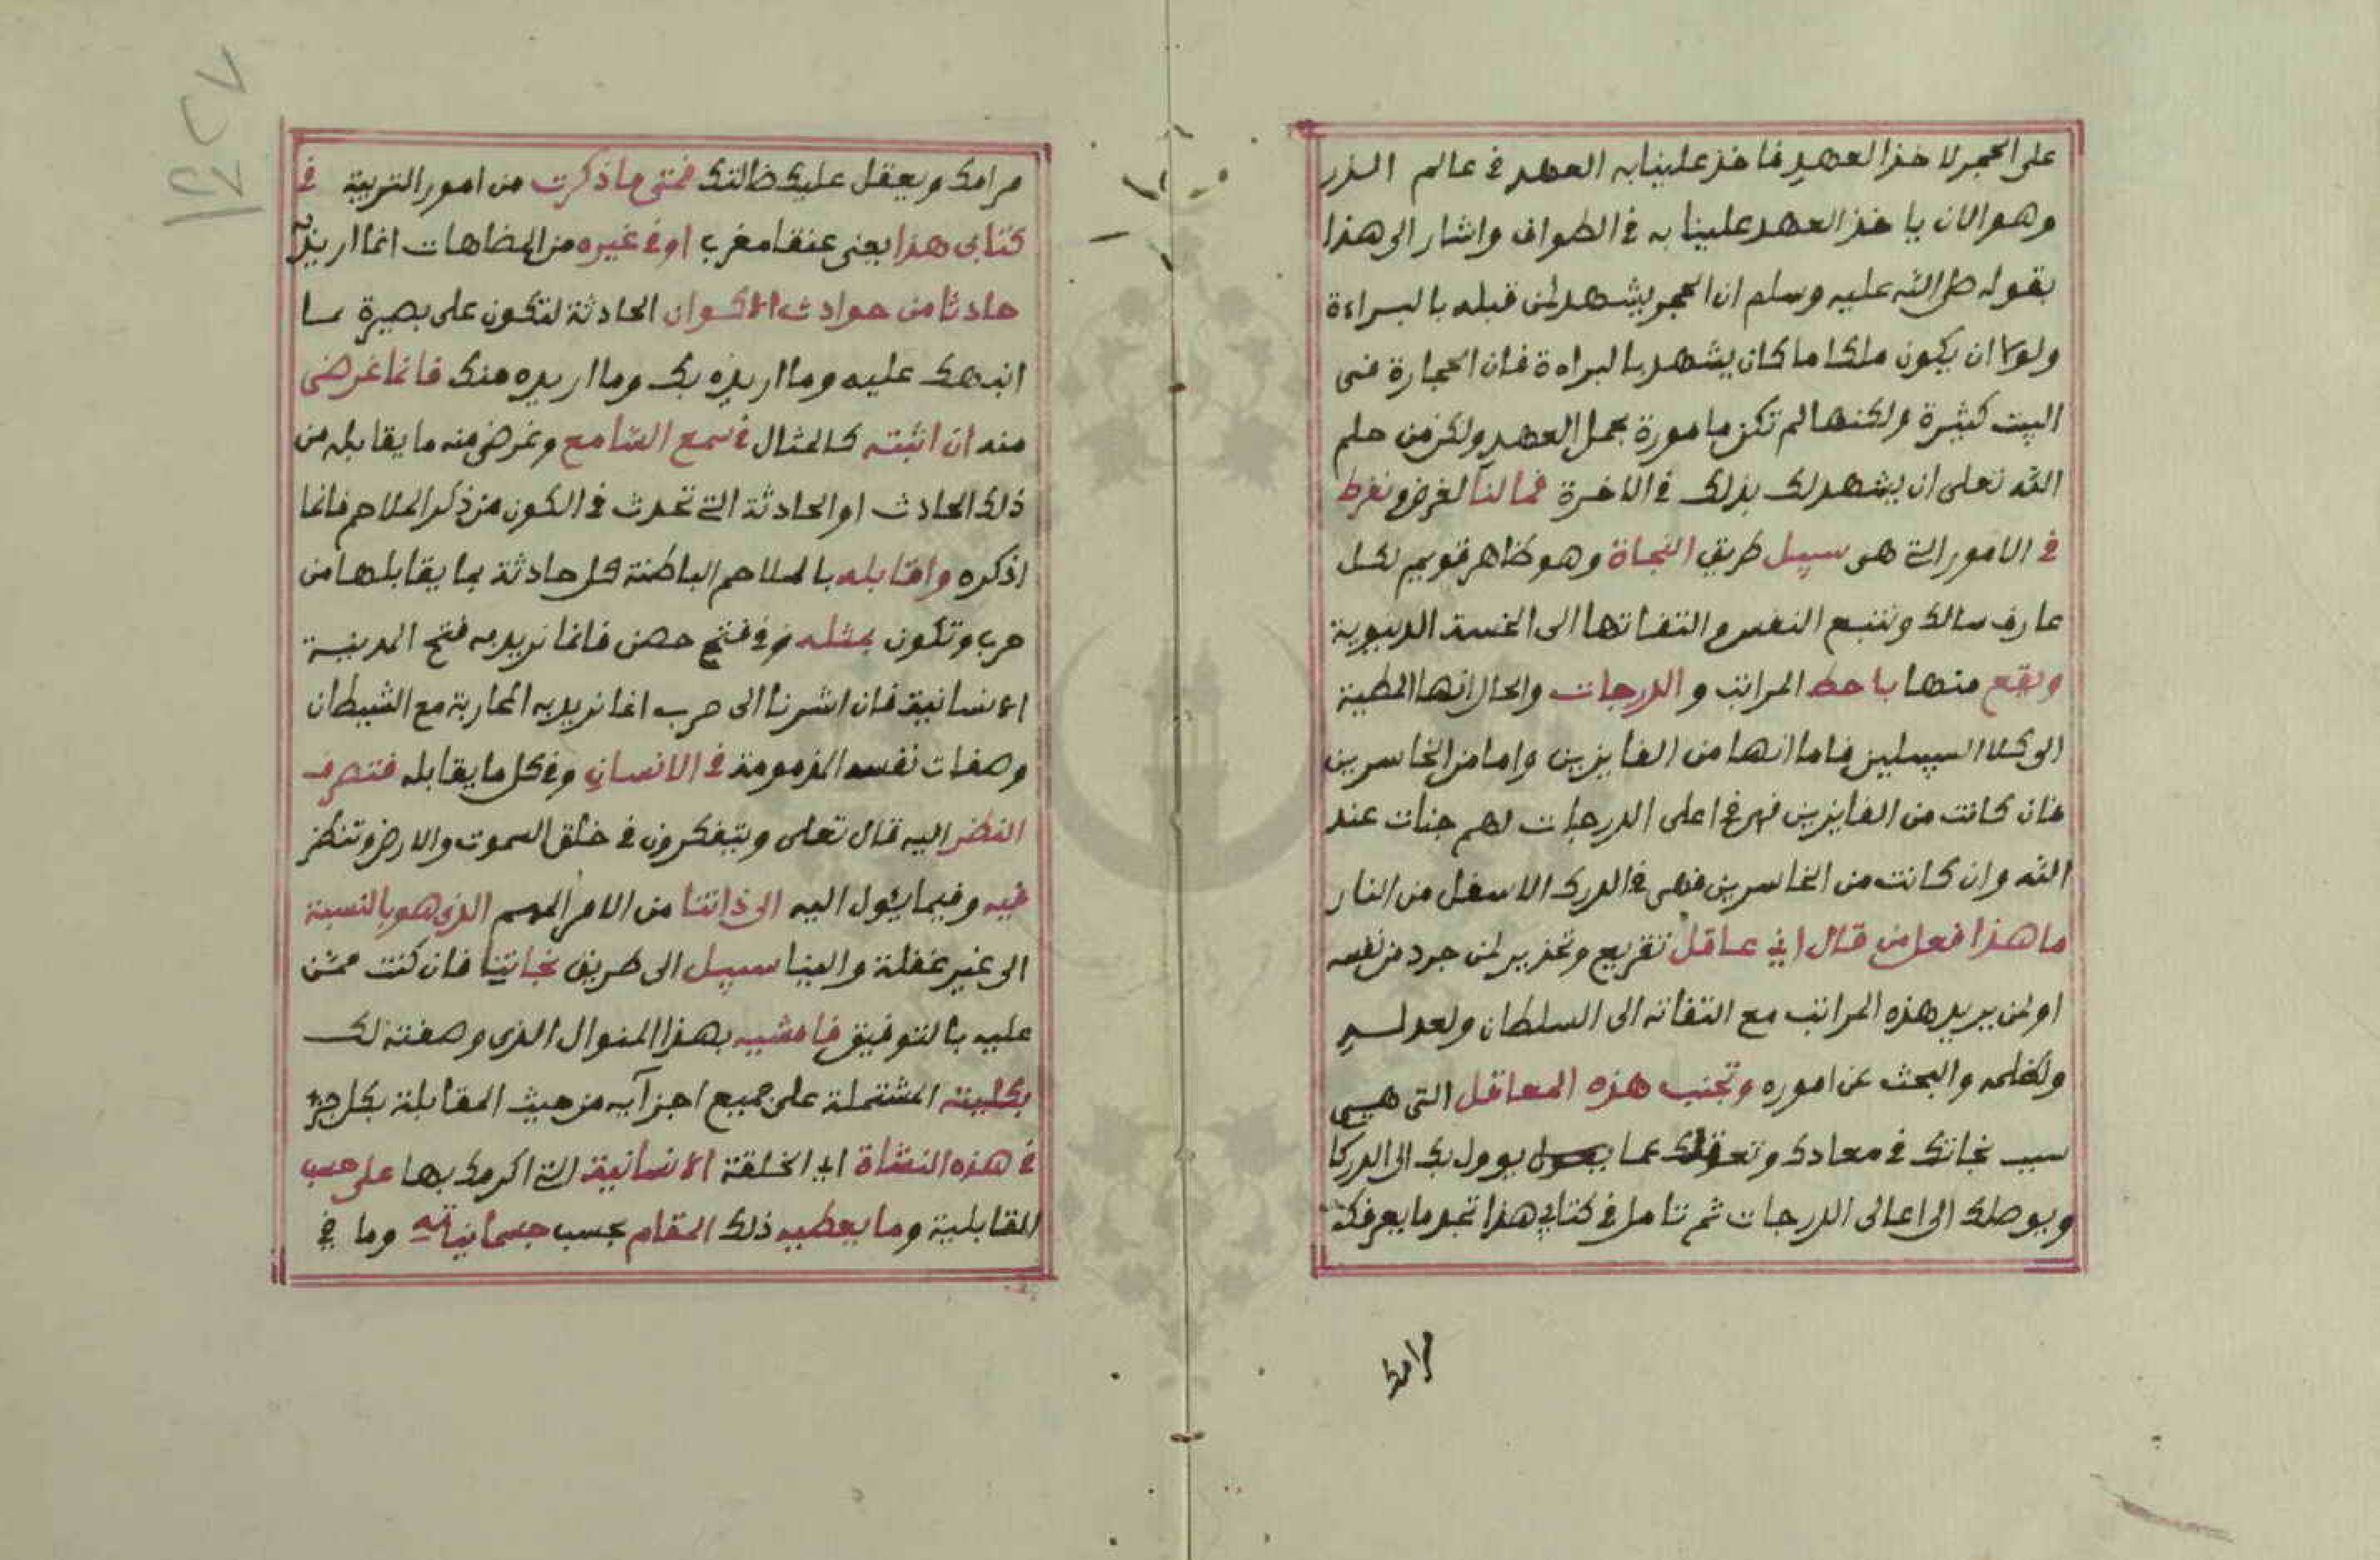 على الحجر لاخذ العهد فاخذ علينا به العهد في عالم الذر
وهو الان ياخذ العهد علينا به في الطواف واشار الى هذا
بقوله صلى الله عليه وسلم ان الحجر يشهد لمن قبله بالبراءة
ولولا ان يكون ملكا ما كان يشهد بالبراءة فان الحجارة فى
البيت كثيرة ولكنها لم تكن مامورة بحمل العهد ولكن من حلم
الله تعلى ان يشهد لك بذلك في الاخرة فما لنا لغرض نفرط
في الامور التي هي سبيل طريق النجاة وهو ظاهر قويم لكل
عارف سالك ونتبع النفس والتفاتها الى الخسة الدنيوية
ونقع منها باحط المراتب والدرجات والحال انها المطية
الى كلا السبيلين فاما انها من الفايزين واما من الخاسرين
فان كانت من الفايزين فهي في اعلى الدرجات لهم جنات عند
الله وان كانت من الخاسرين فهى في الدرك الاسفل من النار
ما هذا فعل من قال اني عاقل تقريع وتحذير لمن جرد من نفسه
او لمن يريد هذه المراتب مع التفاته الى السلطان ولعدله
ولظلمه والبحث عن اموره وتجنب هذه المعاقل التى هى
سبب نجاتك في معادك وتعوقك عما يوول بك الى الدركا
ويوصلك الى اعالى الدرجات ثم تامل في كتابي هذا تجد ما يعرفك
مرامك
مرامك ويعقل عليك ضالتك فمتى ما ذكرت من امور التربية في
كتابى هذا يعنى عنقا مغرب او في غيره من المضاهات انما اريد به
حادثا من حوادث الاكوان الحادثة لتكون على بصيرة مما
انبهك عليه وما اريده بك وما اريده منك فانما غرضى
منه ان اثبته كالمثال في سمع السامع وغرضى منه ما يقابله من
ذلك الحادث او الحادثة التي تحدث في الكون من ذكر الملاحم فانما
اذكره واقابله بالملاحم الباطنة كل حادثة بما يقابلها من
حرب وتكون بمثله وفي فتح حصن فانما نريد به فتح المدينة
الانسانية فان اشرنا الى حرب انما نريد به المحاربة مع الشيطان
وصفات نفسه المذمومة في الانسان وفي كل ما يقابله فتصرف
النظر اليه قال تعلى ويتفكرون في خلق السموت والارض وتنظر
فيه وفيما يئول اليه الى ذاتنا من الامر المهم الذى هو بالنسبة
الى غير غفلة والينا سبيل الى طريق نجاتنا فان كنت ممن
عليه بالتوفيق فامشيه بهذا المنوال الذى وصفته لك
بكليته المشتملة على جميع اجزآيه من حيث المقابلة بكل جزء
في هذه النشاة اي الخلقة الانسانية التي اكرمك بها على حسب
القابلية وما يعطيه ذلك المقام بحسب جسمانياته وما في